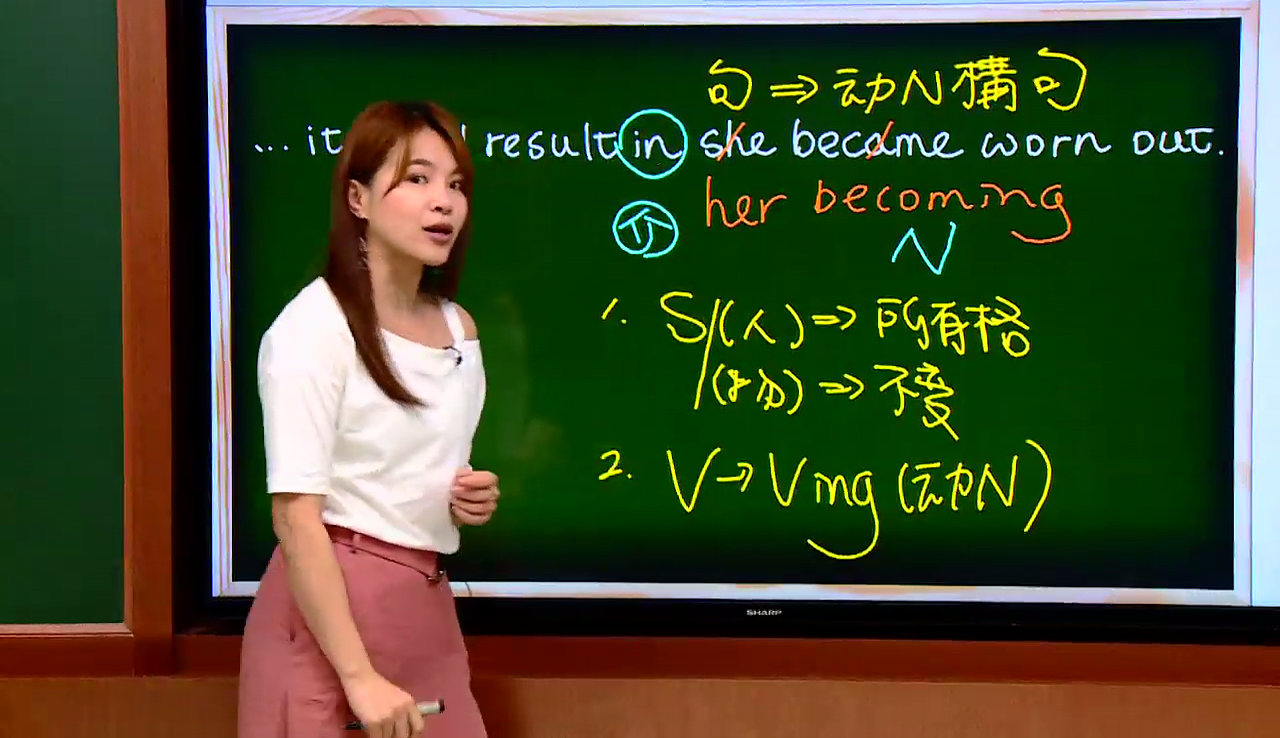 句⇒动N構句
... it result in she became worn out.
her becoming
介
N
1. S/(人)⇒所有格
/(物)⇒不变
2. V→Ving(动N)
SHARP